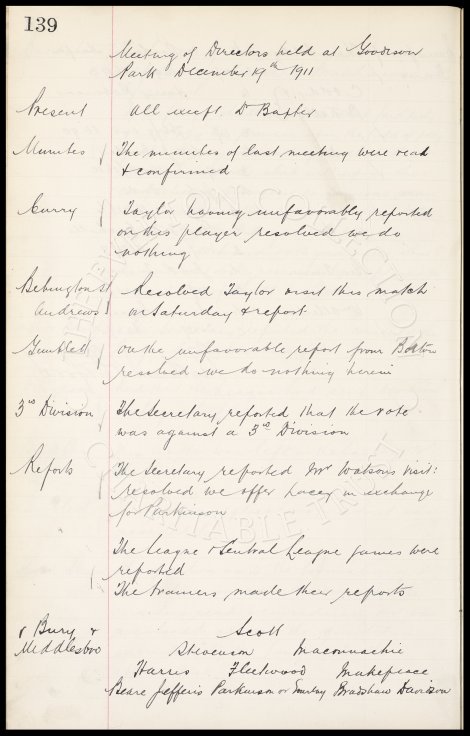 139
Meeting of Directors held at Goodison
Park December 19th 1911
Present all except Dr Baxter
Minutes The minutes of last meeting were read
& confirmed
Curry Taylor having unfavorably reported
on this player resolved we do
nothing
Bebington St Resolved Taylor visit this match
Andrews on Saturday & report
on the unfavorable report from Bolton
resolved we do nothing herein
3rd Division The Secretary reported that the vote
was against a 3rd Division
Reports The Secretary reported Mr Watsons visit:
resolved we offer in exchange
for Parkinson
The League & Central League games were
reported
The trainers made their reports
v Bury & Scott
Middlesboro Stevenson Maconnachie
Harris Fleetwood Makepeace
Beare Jefferis Parkinson or Gourlay Bradshaw Davidson